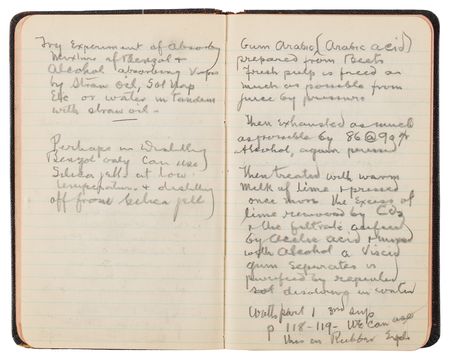 Try Experiment of Absorbing
mixture of Benzol &
Alcohol absorbing Vapors
by Straw Oil, Sol Nap
Etc or water in tandem
with straw oil -
Perhaps in Distilling
Benzol only can use
Silica jell at low
temperature & distilling
off from Silica jell
Gum Arabic (Arabic acid)
prepared from Beets
Fresh pulp is freed as
much as possible from
juice by pressure
Then exhausted as much
as possible by 86 @ 90%
Alcohol, again pressed
Then treated with warm
Milk of lime & pressed
once more the Excess of
lime removed by CO2
& the filtrate acidified
by Acetic acid & mixed
with Alcohol a Viscid
gum separates is
purified by repeated
dissolving in water
Watts part 1 3rd sup
p 118-119- We can use
this in Rubber